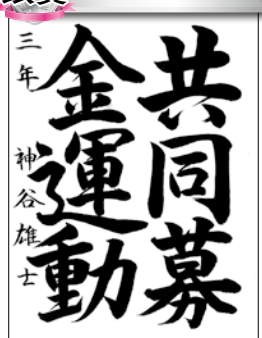 共同募
金運動
三年 神谷雄士